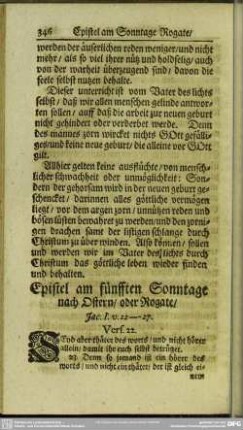 346 Epistel am Sonntage Rogate/
werden der äuserlichen reden weniger/und nicht
mehr/ als so viel ihrer nütz und holdselig/ auch
von der warheit überzeugend sind/ davon die
seele selbst nutzen behalte.
Dieser unterricht ist vom Vater des lichts
selbst/ daß wir allen menschen gelinde antwor-
ten sollen/ auff daß die arbeit zur neuen geburt
nicht gehindert oder verderbet werde. Denn
des mannes zorn wircket nichts GOtt gefälli-
ges/und keine neue geburt/ die alleine vor GOtt
gilt.
Alhier gelten keine ausflüchte/ von mensch-
licher schwachheit oder unmöglichkeit: Son-
dern der gehorsam wird in der neuen geburt ge-
schencket/ darinnen alles göttliche vermögen
liegt/ vor dem argen zorn/ unnützen reden und
bösen lüsten bewahret zu werden/ und den zorni-
gen drachen samt der listigen schlange durch
Christum zu über winden. Also können/ sollen
und werden wir im Vater des lichts durch
Christum das göttliche leben wieder finden
und behalten.
Epistel am fünfften Sonntage
nach Ostern/ oder Rogate/
Jac. I. v. 22--27.
Vers. 22.
SEyd aber thäter des worts/ und nicht hörer
allein/ damit ihr euch selbst betrüget.
23) Denn so jemand ist ein hörer des
worts/ und nicht ein thäter/ der ist gleich ei-
nem